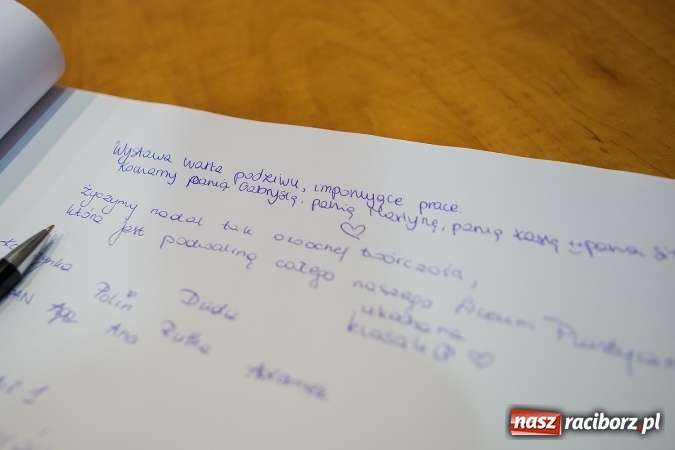 Wystawa warta podziwu, imponujące prace.
Kochamy panią Gabrysię, panią Martynę, panią Kasię pana
Życzymy nadal tak owocnej twórczości,
która jest podwaliną całego naszego Liceum
ukochana
Polin Duda
klasa
Aga Ana Rutka
nasz raciborz.pl